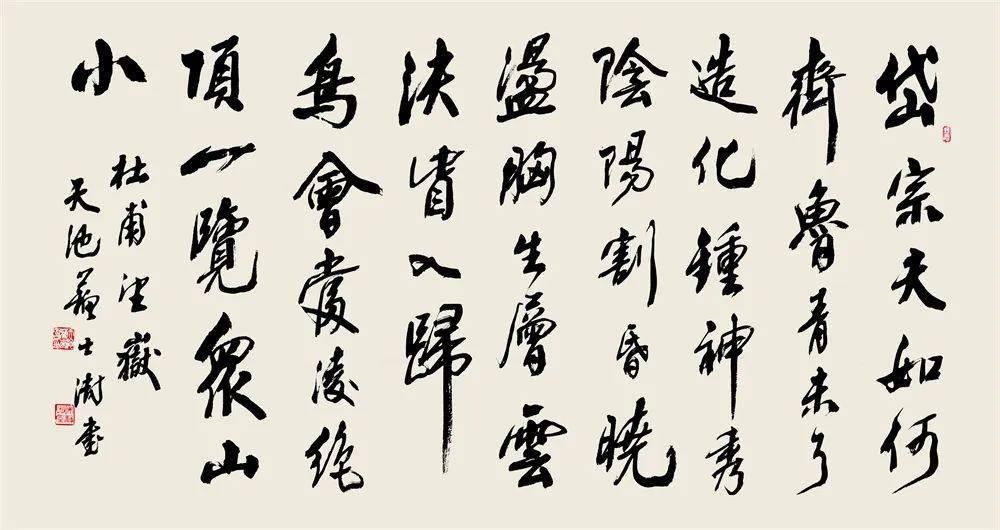 岱宗夫如何
齊魯青未了
造化鍾神秀
陰陽割昏曉
盪胸生層雲
決眥入歸
鳥會當凌絕
頂一覽眾山
小
杜甫望嶽
天池蘇士澍書